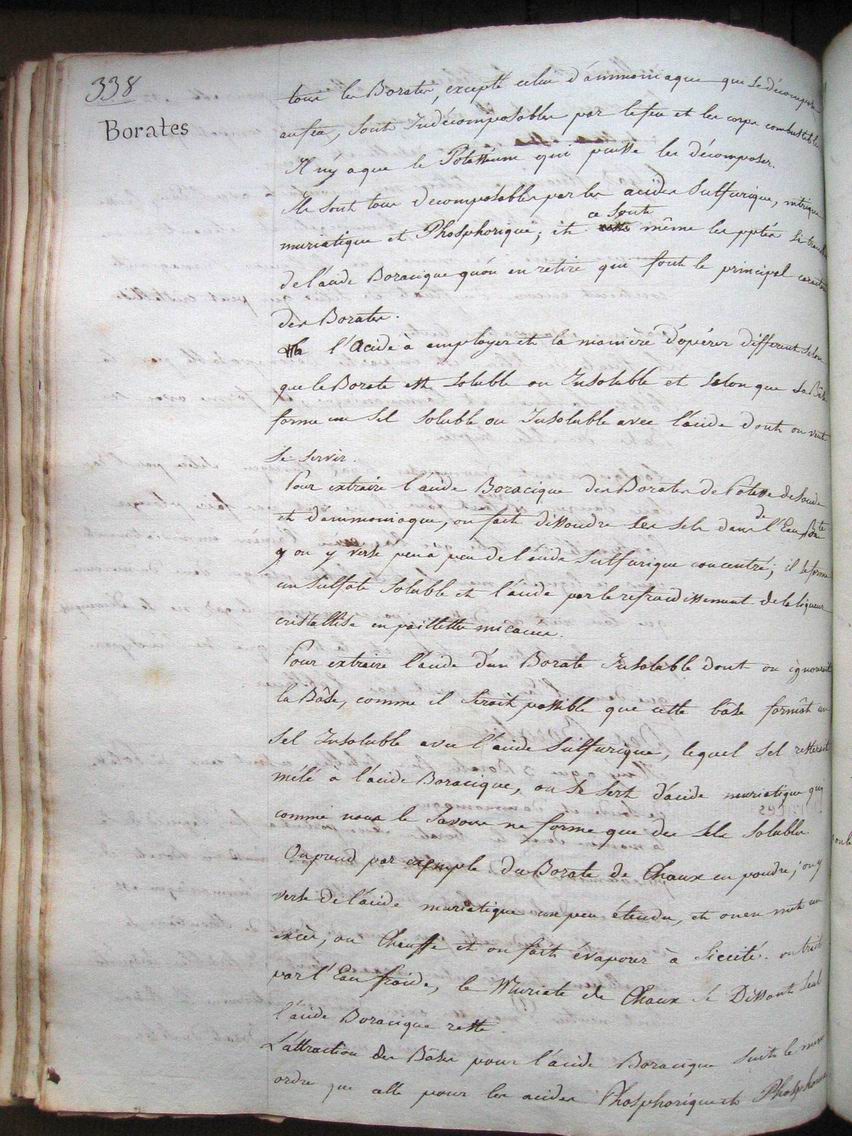 338
Borates
tous les Borates, excepté celui d'ammoniaque que se décompose
au feu, sont Indécomposables par le feu et les corps combustibles
Il n'y a que le Potassium qui puisse les décomposer.
Ils sont tous décomposables par les acides Sulfurique, nitrique
muriatique et Phosphorique, et ce sont même les pptés
de l'acide Boracique qu'on en retire qui font le principal caractère
des Borates.
l'Acide à employer et la manière d'opérer diffèrent selon
que le Borate est Soluble ou Insoluble et selon que sa Bâse
forme un Sel Soluble ou Insoluble avec l'acide dont on veut
se servir.
Pour extraire l'acide Boracique des Borates de Potasse de Soude
et d'ammoniaque, on fait dissoudre ses sels dans de l'Eau
on y verse peu à peu de l'acide Sulfurique concentré; il se forme
un Sulfate Soluble et l'acide par le refroidissement de la liqueur
cristallise en paillette micacée.
Pour extraire l'acide d'un Borate Insoluble dont on ignoroit
la Bâse, comme il seroit possible que cette bâse formât un
Sel Insoluble avec l'acide Sulfurique, lequel sel resteroit
mêlé à l'acide Boracique, on se sert d'acide muriatique qui
comme nous le savons ne forme que des sels solubles
On prend par exemple du Borate de Chaux en poudre, on y
verse de l'acide muriatique un peu étendu, et on en met un
excès, on chauffe et on fait évaporer à Siccité. on traite
par l'Eau froide, le Muriate de Chaux se Dissout Seul
l'acide Boracique reste
L'attraction des Bâses pour l'acide Boracique suit le même
ordre que celle pour les acides Phosphorique et Phosphoreux